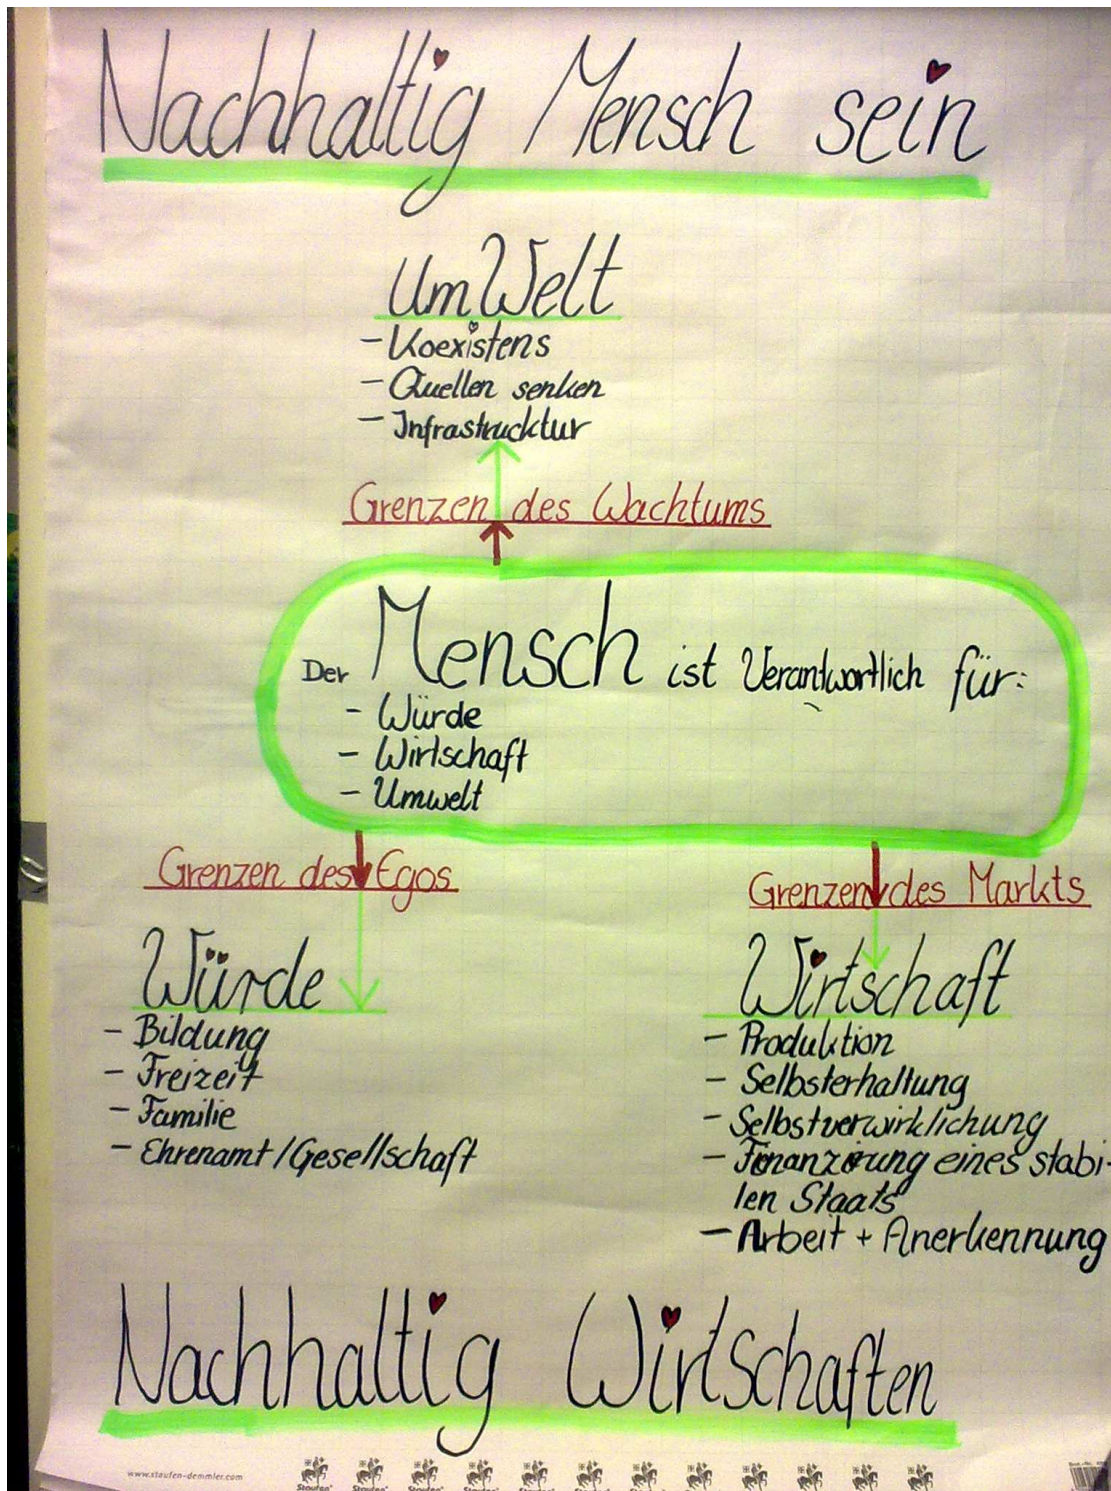 Nachhaltig Mensch sein
UmWelt
- Koexistens
- Quellen senken
- Infrastrucktur
Grenzen des Wachtums
Der Mensch ist Verantwortlich für:
- Würde
- Wirtschaft
- Umwelt
Grenzen des Egos
Würde
- Bildung
- Freizeit
- Familie
- Ehrenamt/Gesellschaft
Grenzen des Markts
Wirtschaft
- Produktion
- Selbsterhaltung
- Selbstverwirklichung
- Finanzirung eines stabi-
len Staats
- Arbeit + Anerkennung
Nachhaltig Wirtschaften
www.staufen-demmler.com
Staufen Staufen Staufen Staufen Staufen Staufen Staufen Staufen Staufen Staufen Staufen Staufen